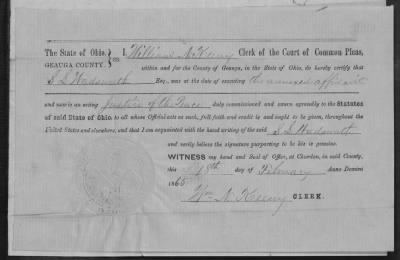 The State of Ohio, } ss. I, William N. Keeny Clerk of the Court of Common Pleas,
GEAUGA COUNTY.
within and for the County of Geauga, in the State of Ohio, do hereby certify that
S L Wadsworth Esq., was at the date of executing the annexed affidavit
and now is an acting Justice of the Peace duly commissioned and sworn agreeably to the Statutes
of said State of Ohio to all whose Official acts as such, full faith and credit is and ought to be given, throughout the
United States and elsewhere, and that I am acquainted with the hand writing of the said S L Wadsworth
and verily believe the signature purporting to be his is genuine.
WITNESS my hand and Seal of Office, at Chardon, in said County,
this day of February Anno Domini
1865
Wm N. Keeny CLERK.